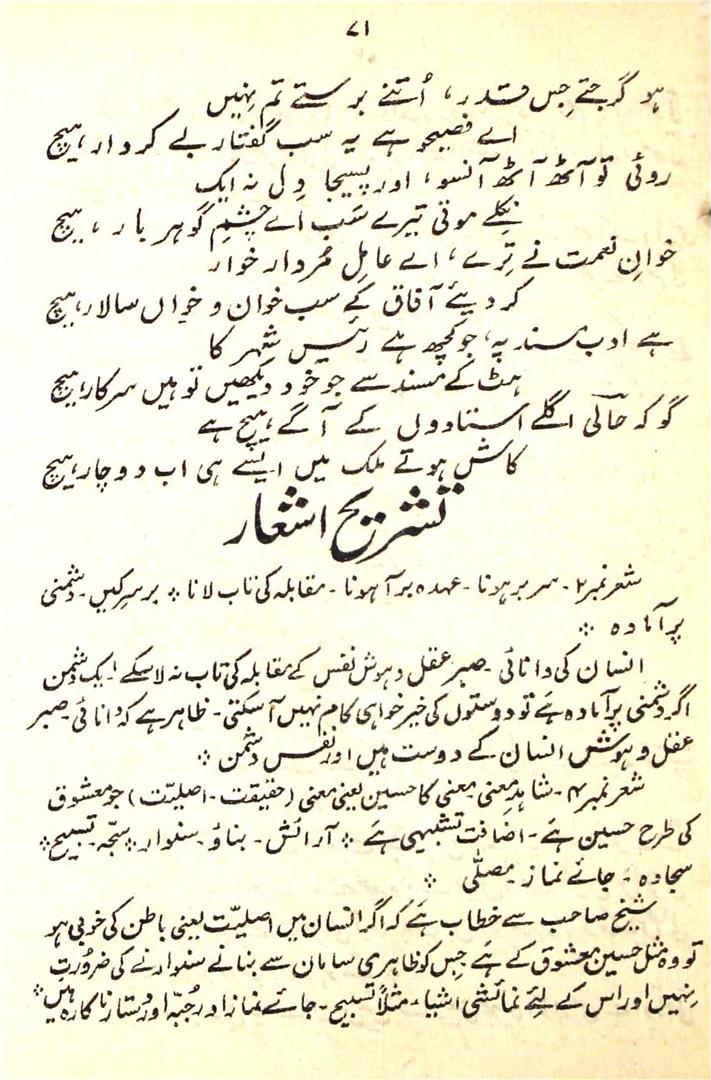 ۷۱
ہو گرجتے جس قدر، اُتنے برستے تم نہیں
اے فصیحو ہے یہ سب گفتار بے کردار، ہیچ
روئی تو آٹھ آٹھ آنسو، اور پسیجا دِل نہ ایک
نِکلے موتی تیرے سَب اے چشمِ گوہر بار، ہیچ
خوانِ نعمت نے تِرے، اے عامِل مُردار خوار
کر دیئے آفاق کے سب خوان و خواں سالار، ہیچ
ہے ادب مسند پہ، جو کچھ ہے رئیسِ شہر کا
ہٹ کے مسند سے جو خود دیکھیں تو ہیں سرکار، ہیچ
گو کہ حالؔی اگلے استادوں کے آگے ہیچ ہے
کاش ہوتے ملک میں ایسے ہی اب دو چار، ہیچ
تشریح اشعار
شعر نمبر ۲۔ سربر ہونا۔ عہدہ برآ ہونا۔ مقابلہ کی تاب لانا ؞ برسرِ کیں۔ دشمنی
پر آمادہ ؞
انسان کی دانائی۔ صبر عقل و ہوش نفس کے مقابلہ کی تاب نہ لا سکے۔ ایک دشمن
اگر دشمنی پر آمادہ ہے تو دوستوں کی خیر خواہی کام نہیں آ سکتی۔ ظاہر ہے کہ دانائی۔ صبر
عقل و ہوش انسان کے دوست ہیں اور نفس دشمن ؞
شعر نمبر ۴۔ شاہدِ معنی۔ معنی کا حسین یعنی معنی (حقیقت۔ اصلیّت) جو معشوق
کی طرح حسین ہے۔ اضافت تشبیہی ہے ؞ آرائش۔ بناؤ۔ سنوار ؞ سبحہ۔ تسبیح ؞
سجادہ۔ جائے نماز۔ مصلّٰی ؞
شیخ صاحب سے خطاب ہے کہ اگر انسان میں اصلیّت یعنی باطن کی خوبی ہو
تو وہ مثل حسین معشوق کے ہے جِس کو ظاہری سامان سے بنانے سنوارنے کی ضرورت
نہیں اور اس کے لئے نمائشی اشیاء مثلاً تسبیح۔ جائے نماز اور جُبّہ اور دستار ناکارہ ہیں ؞